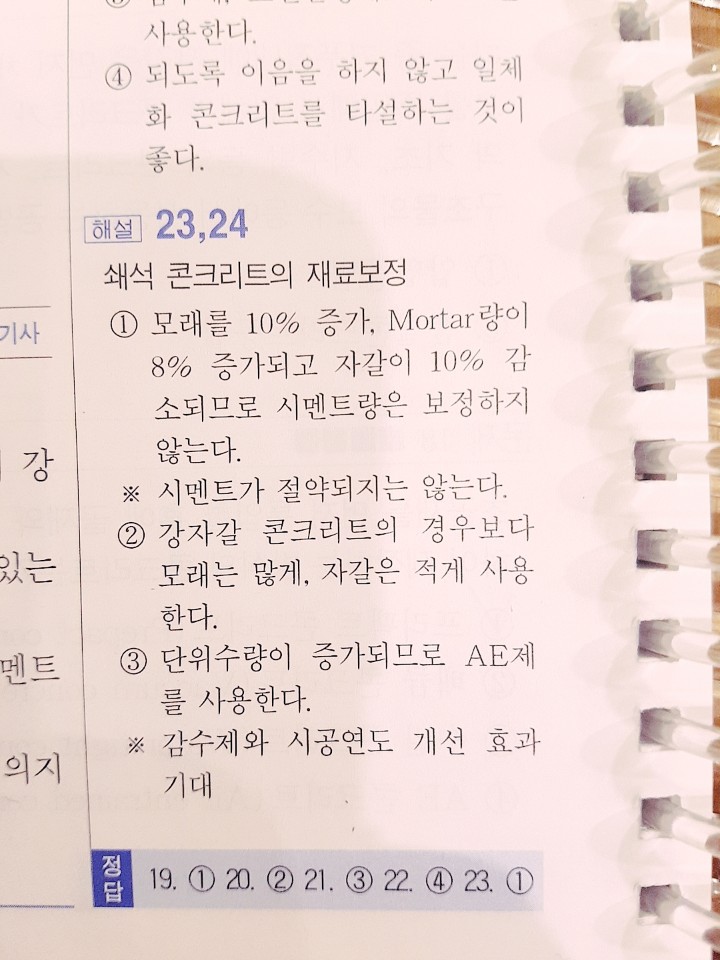 사용한다.
④ 되도록 이음을 하지 않고 일체
화 콘크리트를 타설하는 것이
좋다.
해설 23,24
쇄석 콘크리트의 재료보정
① 모래를 10% 증가, Mortar량이
8% 증가되고 자갈이 10% 감
소되므로 시멘트량은 보정하지
않는다.
※ 시멘트가 절약되지는 않는다.
② 강자갈 콘크리트의 경우보다
모래는 많게, 자갈은 적게 사용
한다.
③ 단위수량이 증가되므로 AE제
를 사용한다.
※ 감수제와 시공연도 개선 효과
기대
기사
강
있는
멘트
의지
정답 19. ① 20. ② 21. ③ 22. ④ 23. ①